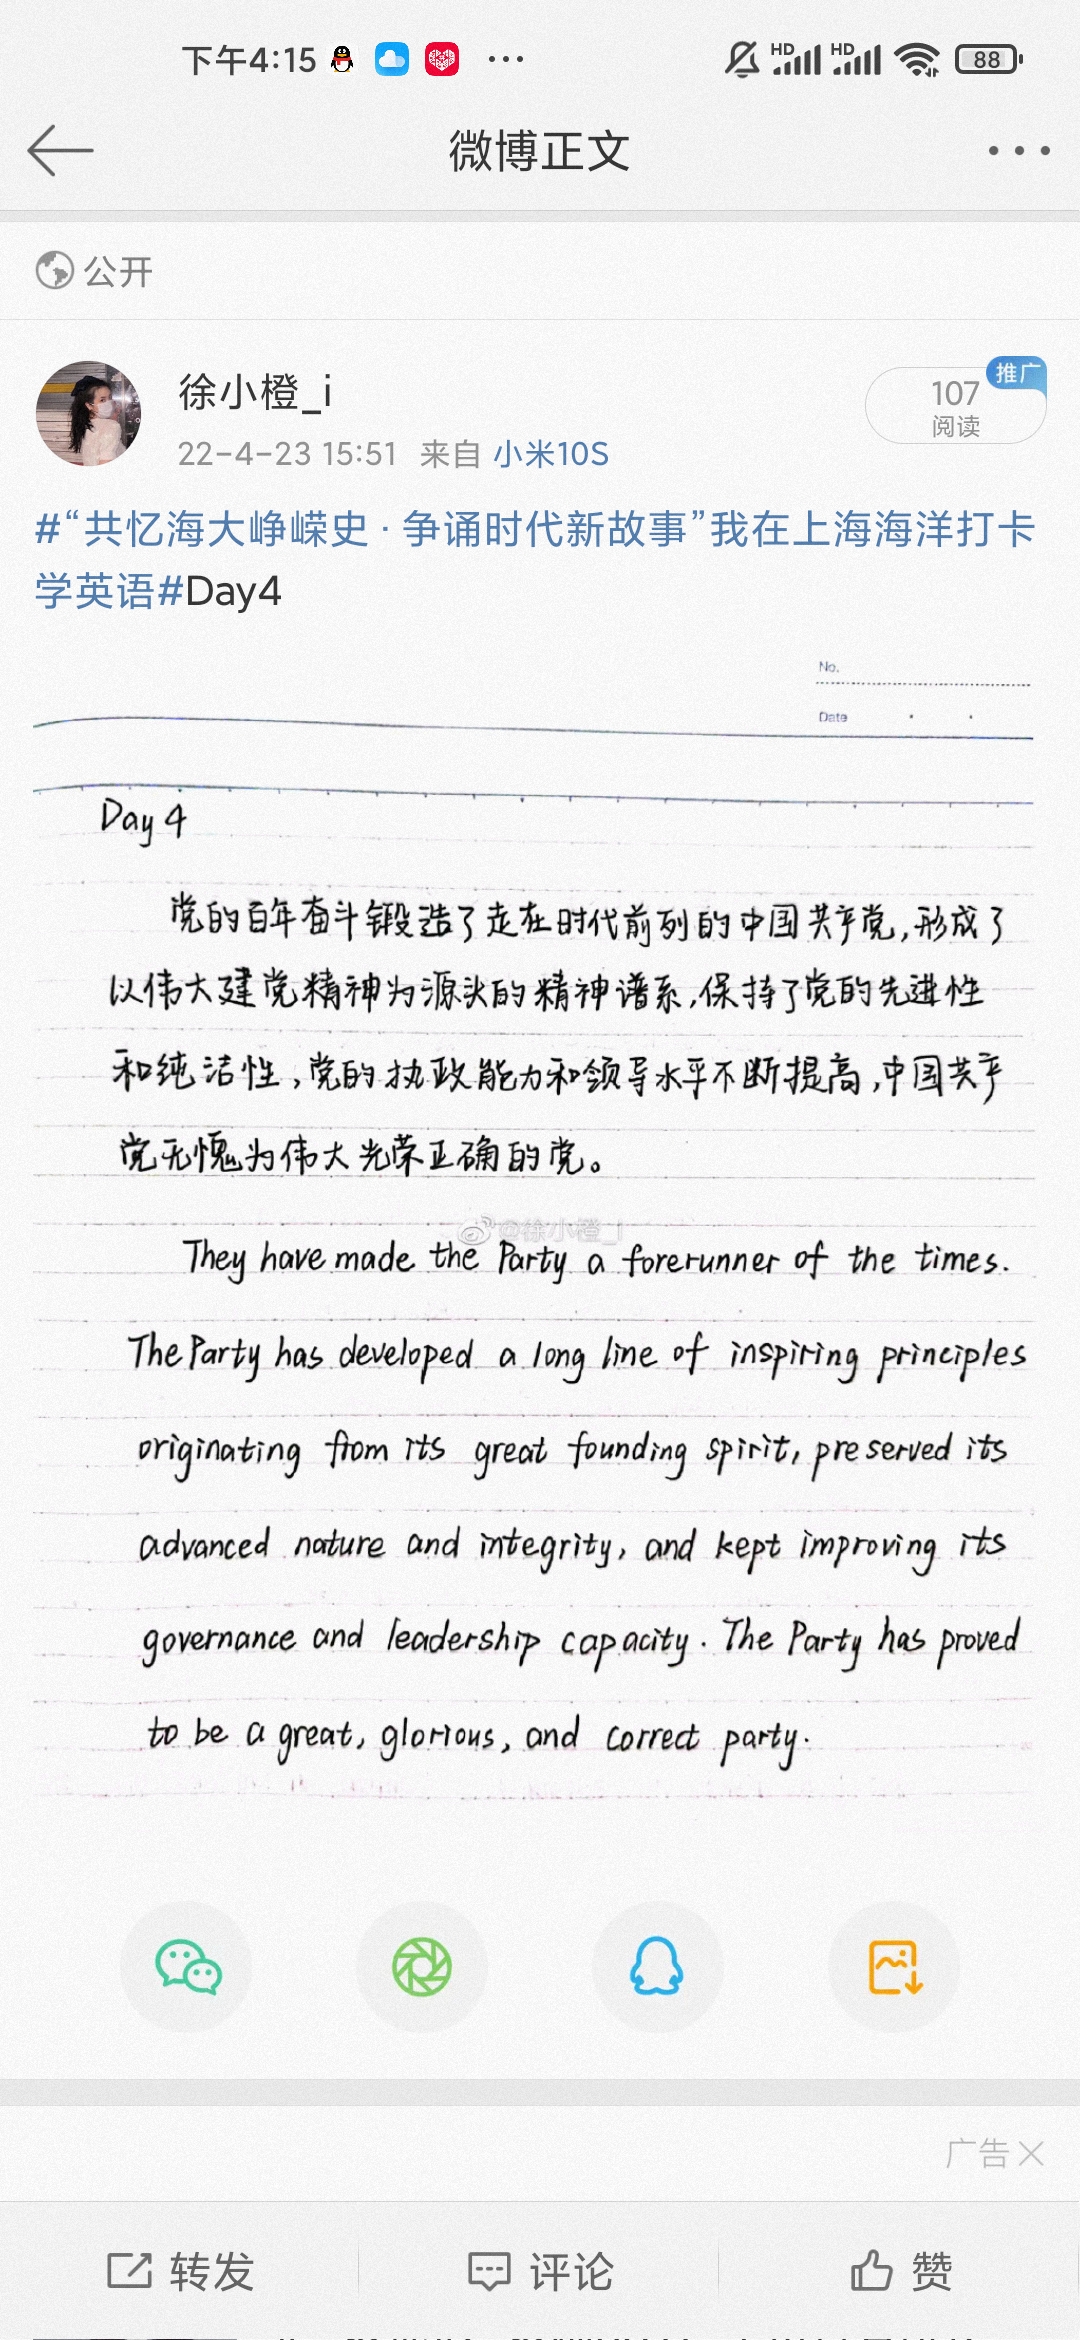 下午4:15 ··· HD HD 88
微博正文
公开
徐小橙_i
推广
107
阅读
22-4-23 15:51 来自 小米10S
#“共忆海大峥嵘史·争诵时代新故事”我在上海海洋打卡
学英语#Day4
No.
Date
Day 4
党的百年奋斗锻造了走在时代前列的中国共产党,形成了
以伟大建党精神为源头的精神谱系,保持了党的先进性
和纯洁性,党的执政能力和领导水平不断提高,中国共产
党无愧为伟大光荣正确的党。
@徐小橙_i
They have made the Party a forerunner of the times.
The Party has developed a long line of inspiring principles
originating from its great founding spirit, preserved its
advanced nature and integrity, and kept improving its
governance and leadership capacity. The Party has proved
to be a great, glorious, and correct party.
广告
转发 评论 赞